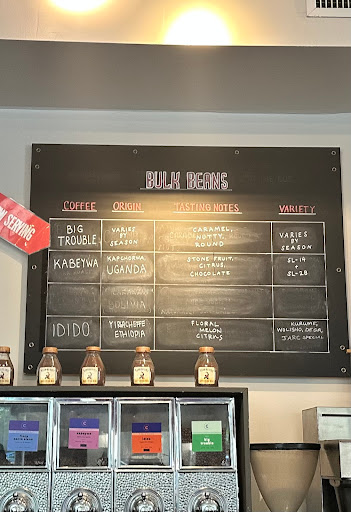 BULK BEANS
COFFEE ORIGIN TASTING NOTES VARIETY
BIG
TROUBLE
VARIES
BY
SEASON
CARAMEL,
NUTTY,
ROUND
VARIES
BY
SEASON
KABEYWA
KAPCHORWA
UGANDA
STONE FRUIT,
CITRUS
CHOCOLATE
SL-14
SL-28
BOLIVIA
IDIDO
YIRGACHEFFE
ETHIOPIA
FLORAL
MELON
CITRUS
KURUME,
WOLISHO, DEGA,
JARC SPECIAL
SERVING
big
trouble